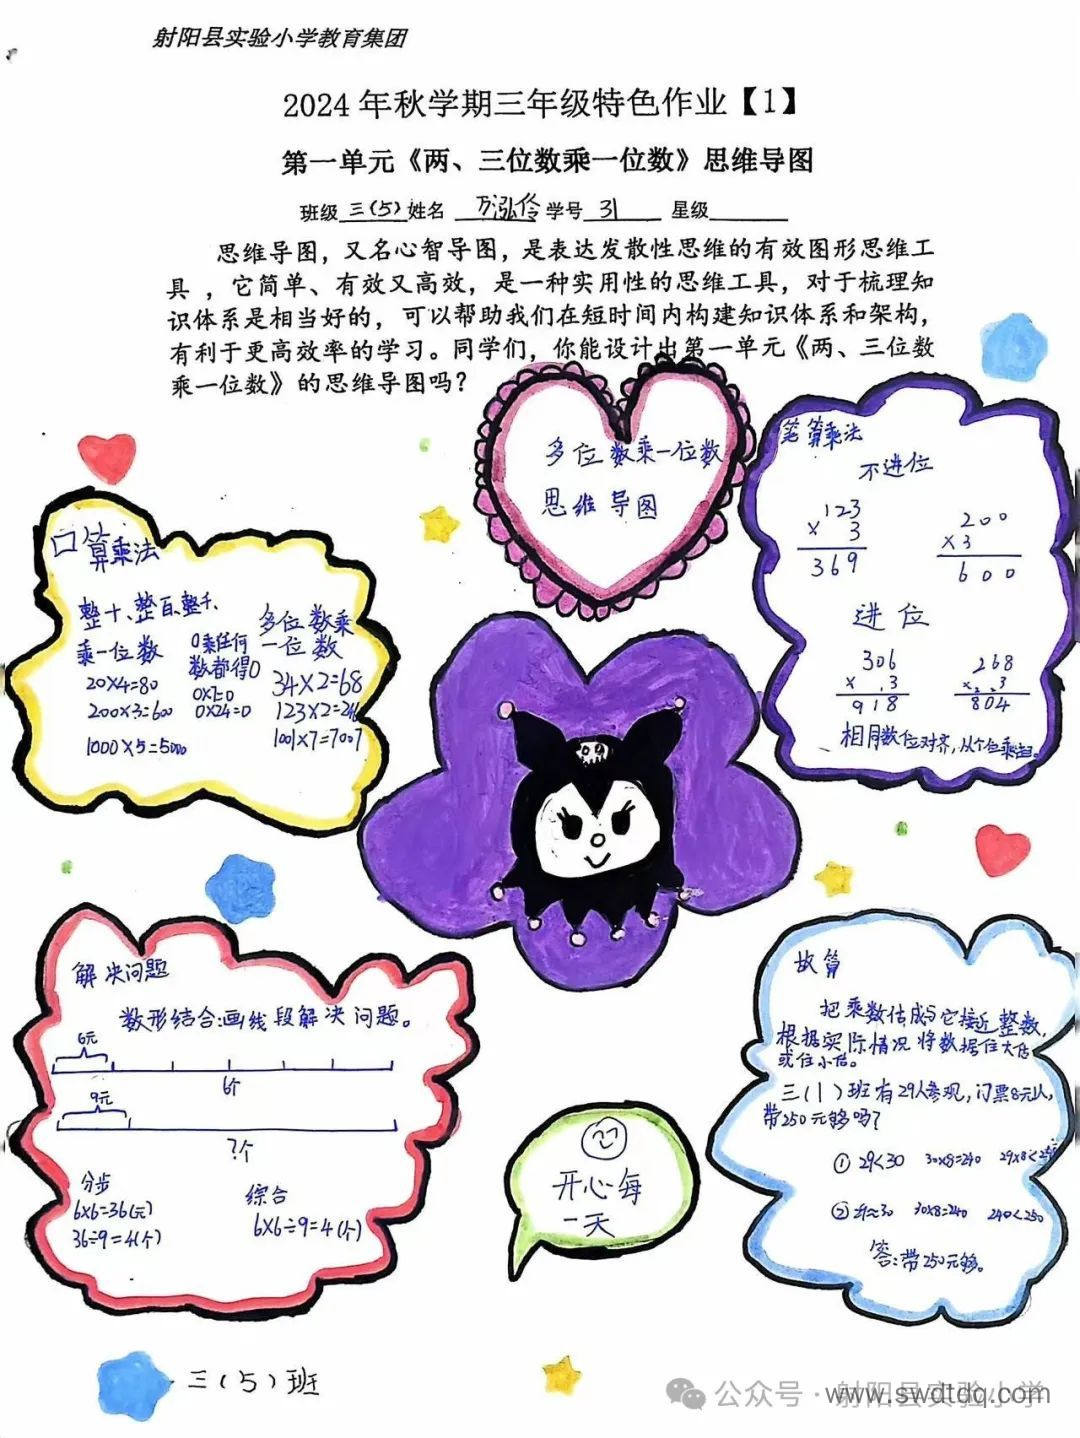 射阳县实验小学教育集团
2024年秋学期三年级特色作业【1】
第一单元《两、三位数乘一位数》思维导图
班级 三(5) 姓名 万泓伶 学号 31 星级
思维导图，又名心智导图，是表达发散性思维的有效图形思维工
具，它简单、有效又高效，是一种实用性的思维工具，对于梳理知
识体系是相当好的，可以帮助我们在短时间内构建知识体系和架构，
有利于更高效率的学习。同学们，你能设计出第一单元《两、三位数
乘一位数》的思维导图吗？
多位数乘一位数
思维导图
口算乘法
整十、整百、整千、
乘一位数
20×4=80
200×3=600
1000×5=5000
0乘任何
数都得0
0×7=0
0×24=0
多位数乘
一位数
34×2=68
123×2=246
1001×7=7007
笔算乘法
不进位
123
× 3
369
200
×3
600
进位
306
× 3
918
268
× 3
804
相同数位对齐，从个位乘起。
解决问题
数形结合：画线段解决问题。
6元
6个
9元
?个
分步
6×6=36(元)
36÷9=4(个)
综合
6×6÷9=4(个)
开心每
一天
估算
把乘数估成与它接近整数，
根据实际情况将数据往大估
或往小估。
三(1)班有29人参观，门票8元/人，
带250元够吗？
① 29<30 30×8=240 29×8<250
② 29≈30 30×8=240 240<250
答：带250元够。
三(5)班
公众号·射阳县实验小学
www.swdtdq.com